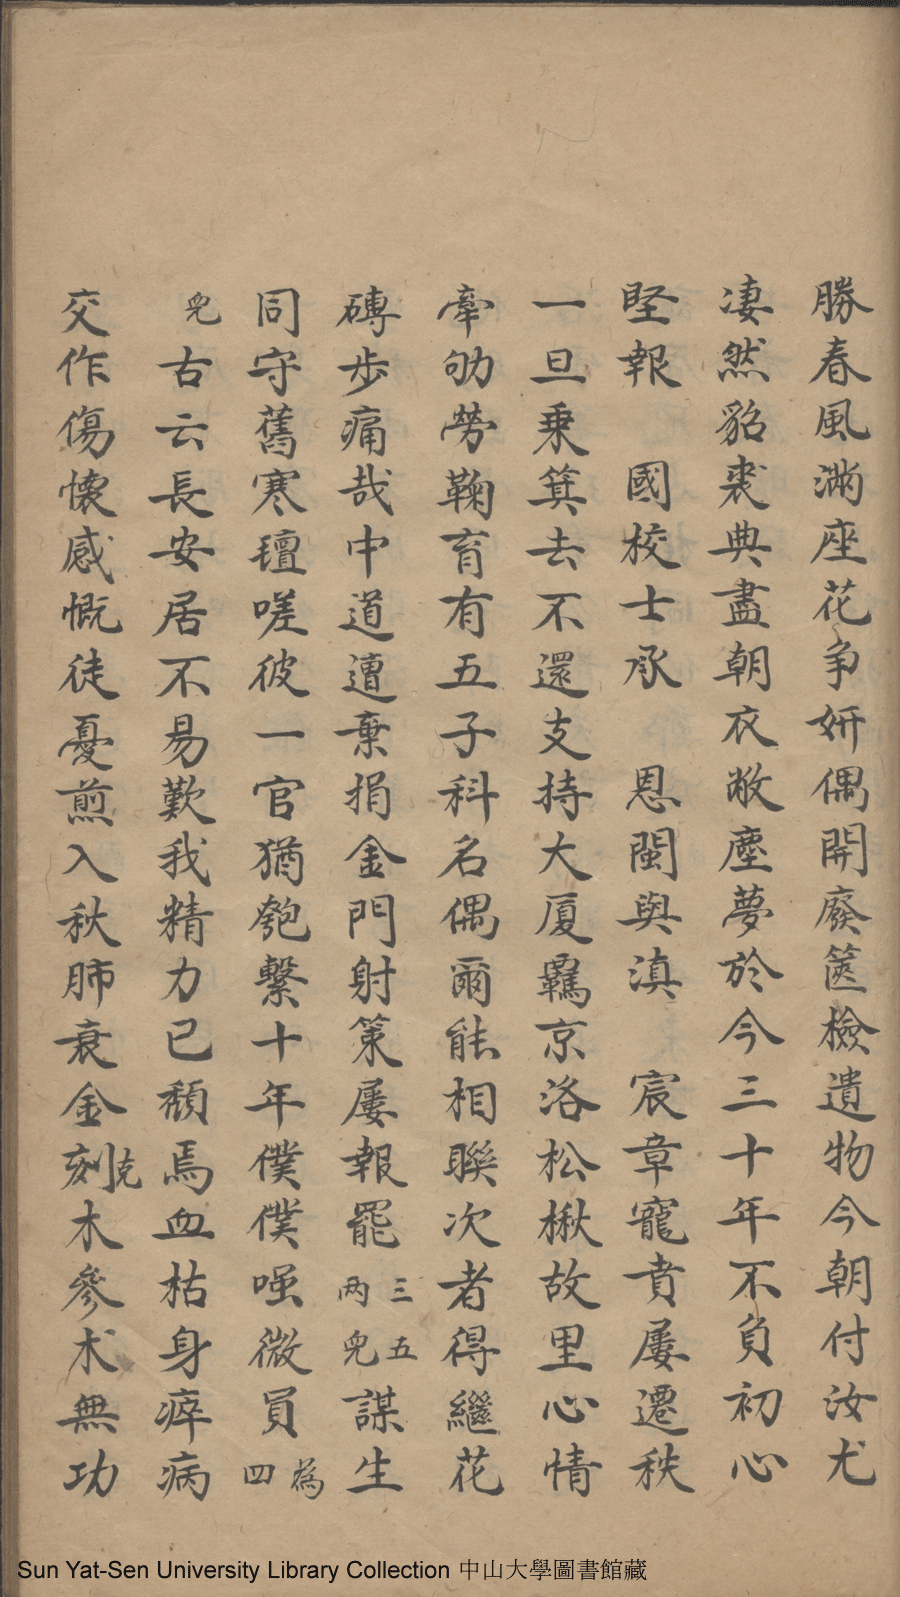 勝春風滿座花爭妍偶開廢篋檢遺物今朝付汝尤
凄然貂裘典盡朝衣敝塵夢於今三十年不負初心
堅報 國校士承 恩閩與滇 宸章寵賁屢遷秩
一旦乘箕去不還支持大厦羈京洛松楸故里心情
牽劬勞鞠育有五子科名偶爾能相聯次者得繼花
磚步痛哉中道遭棄捐金門射策屢報罷三五两兒謀生
同守舊寒氊嗟彼一官猶匏繫十年僕僕嗤微員為四
兒古云長安居不易歎我精力已頹焉血枯身瘁病
交作傷懷感慨徒憂煎入秋肺衰金刻克木參朮無功
Sun Yat-Sen University Library Collection 中山大學圖書館藏